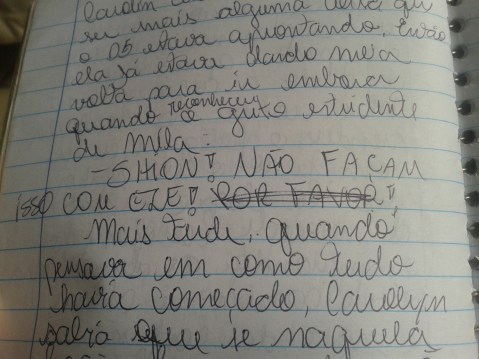 se mais alguma
o DS estava apontando. Então
ela já estava dando meia
volta para ir embora
quando reconheceu o grito estridente
de Mila:
-SHION! NÃO FAÇAM
ISSO COM ELE! POR FAVOR!
Mais tarde, quando
pensava em como tudo
havia começado, Carolyn
sabia que se naquela